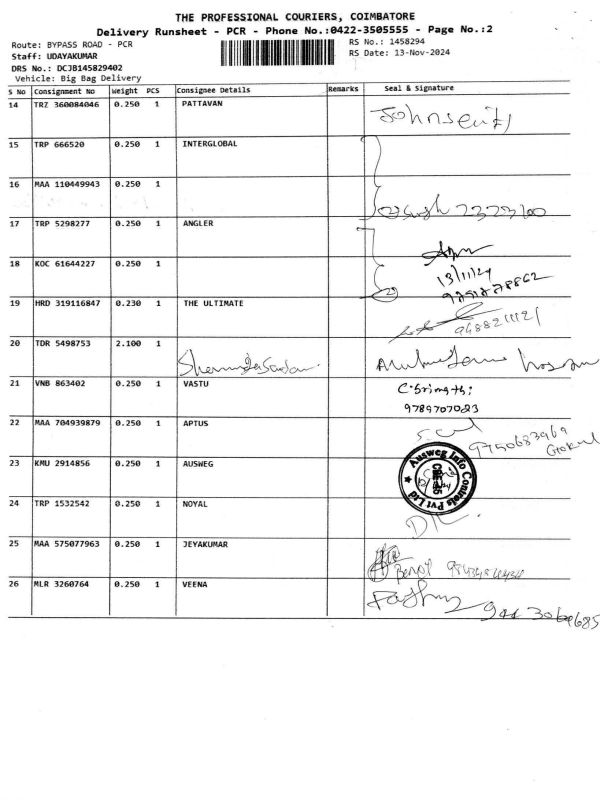 THE PROFESSIONAL COURIERS, COIMBATORE
Delivery Runsheet - PCR - Phone No.:0422-3505555 - Page No.:2
Route: BYPASS ROAD - PCR
RS No.: 1458294
Staff: UDAYAKUMAR
RS Date: 13-Nov-2024
DRS No.: DCJB145829402
Vehicle: Big Bag Delivery
S No Consignment No Weight PCS Consignee Details Remarks Seal & Signature
14 TRZ 360084046 0.250 1 PATTAVAN
15 TRP 666520 0.250 1 INTERGLOBAL
16 MAA 110449943 0.250 1
17 TRP 5298277 0.250 1 ANGLER
18 KOC 61644227 0.250 1
13/11/24
19 HRD 319116847 0.230 1 THE ULTIMATE
20 TDR 5498753 2.100 1
21 VNB 863402 0.250 1 VASTU C. Srimathi
9789707023
22 MAA 704939879 0.250 1 APTUS
9750683969
Gokul
23 KMU 2914856 0.250 1 AUSWEG Ausweg Info Controls Pvt Ltd
24 TRP 1532542 0.250 1 NOYAL
25 MAA 575077963 0.250 1 JEYAKUMAR
26 MLR 3260764 0.250 1 VEENA